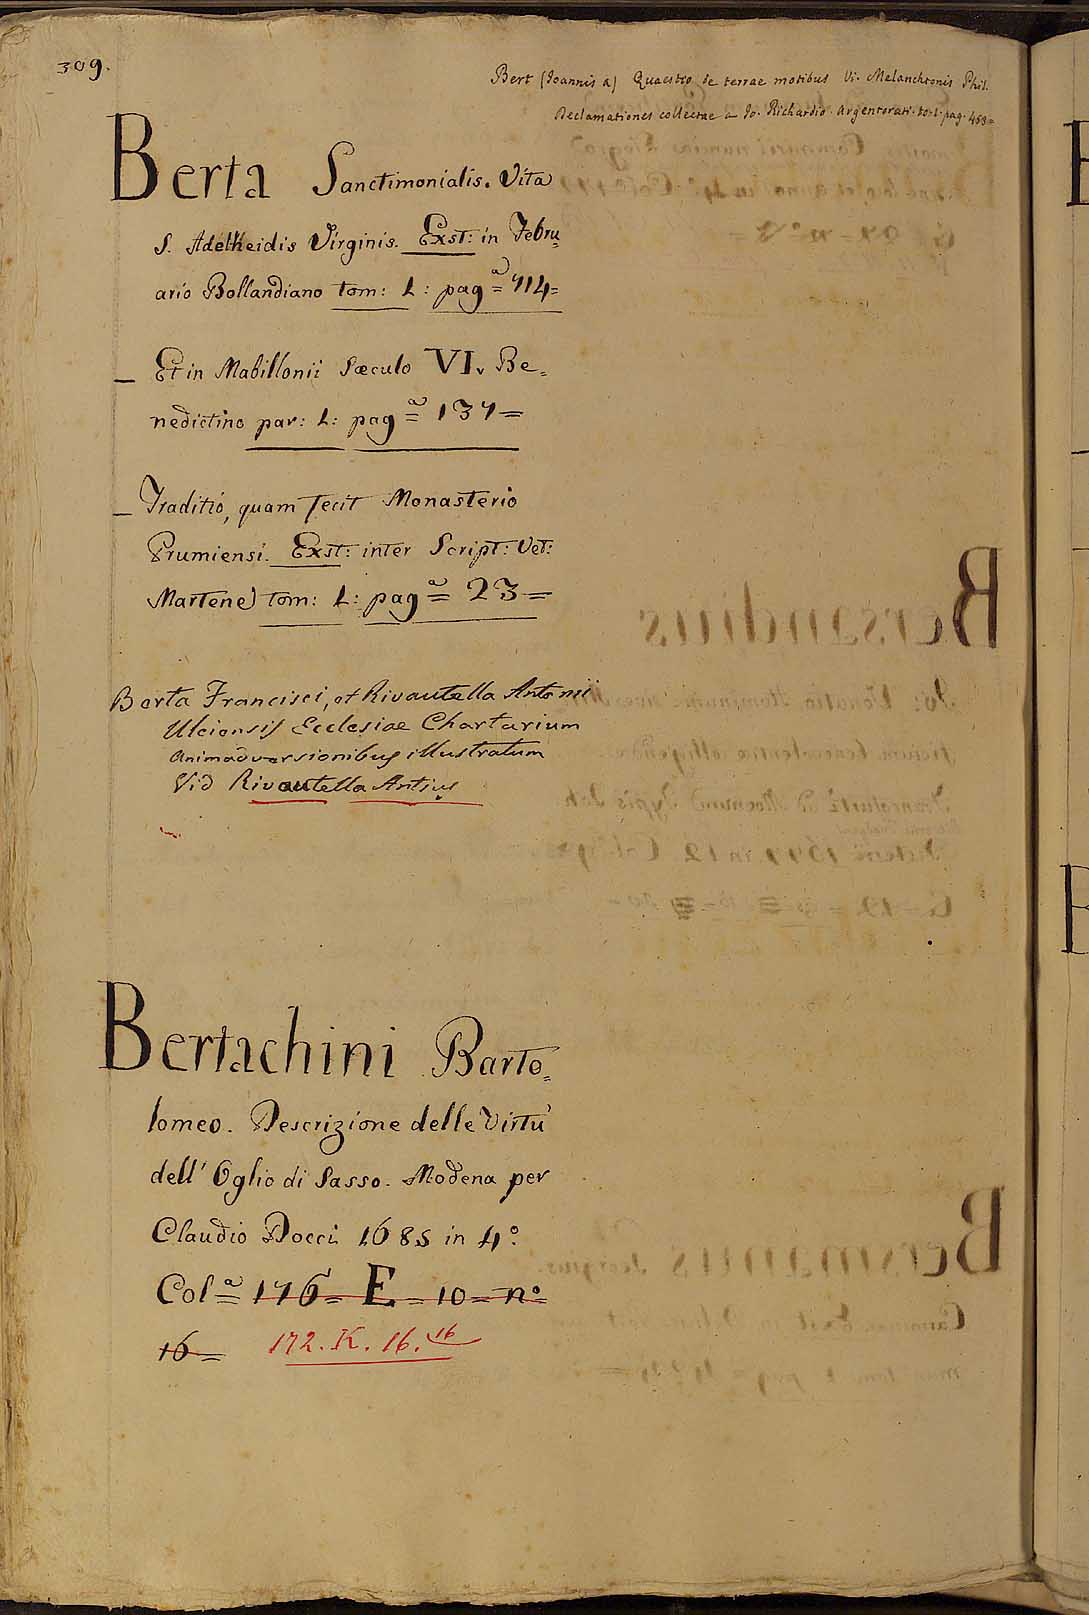 309.
Bert (Joannis a) Quaestio de terrae motibus Vi. Melanchtonis Phil.
Declamationes collectae a Jo. Richardio. Argentorati. to. 1. pag. 468=
Berta Sanctimonialis. Vita
S. Adelheidis Virginis. Exst: in Febru=
ario Bollandiano tom: I: pag=a 714=
_ Et in Mabillonii Sæculo VI. Be=
nedictino par: I: pag=a 137=
_ Traditio, quam fecit Monasterio
Prumiensi. Exst: inter Script: Vet:
Martene tom: I: pag=a 23=
Berta Francisci, et Rivautella Antonii
Ulciensis Ecclesiae Chartarium
animadversionibus illustratum
Vid Rivautella Antius
Bertachini Barto=
lomeo. Descrizione delle Virtù
dell' Oglio di Sasso. Modena per
Claudio Docci 1685 in 4°.
Col=a 176= E = 10 = n°=
16= 172. K. 16. 16